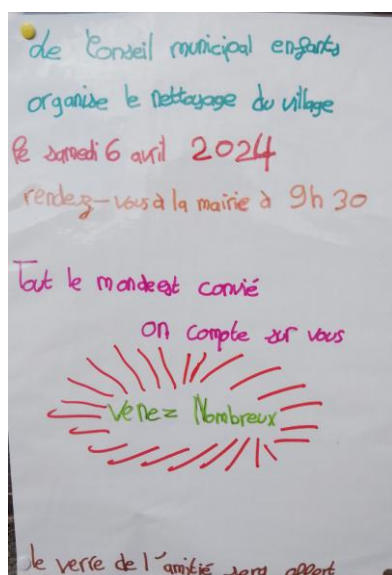 Le Conseil municipal enfants
organise le nettoyage du village
le samedi 6 avril 2024
rendez-vous à la mairie à 9h30
Tout le monde est convié
on compte sur vous
Venez Nombreux
le verre de l'amitié sera offert